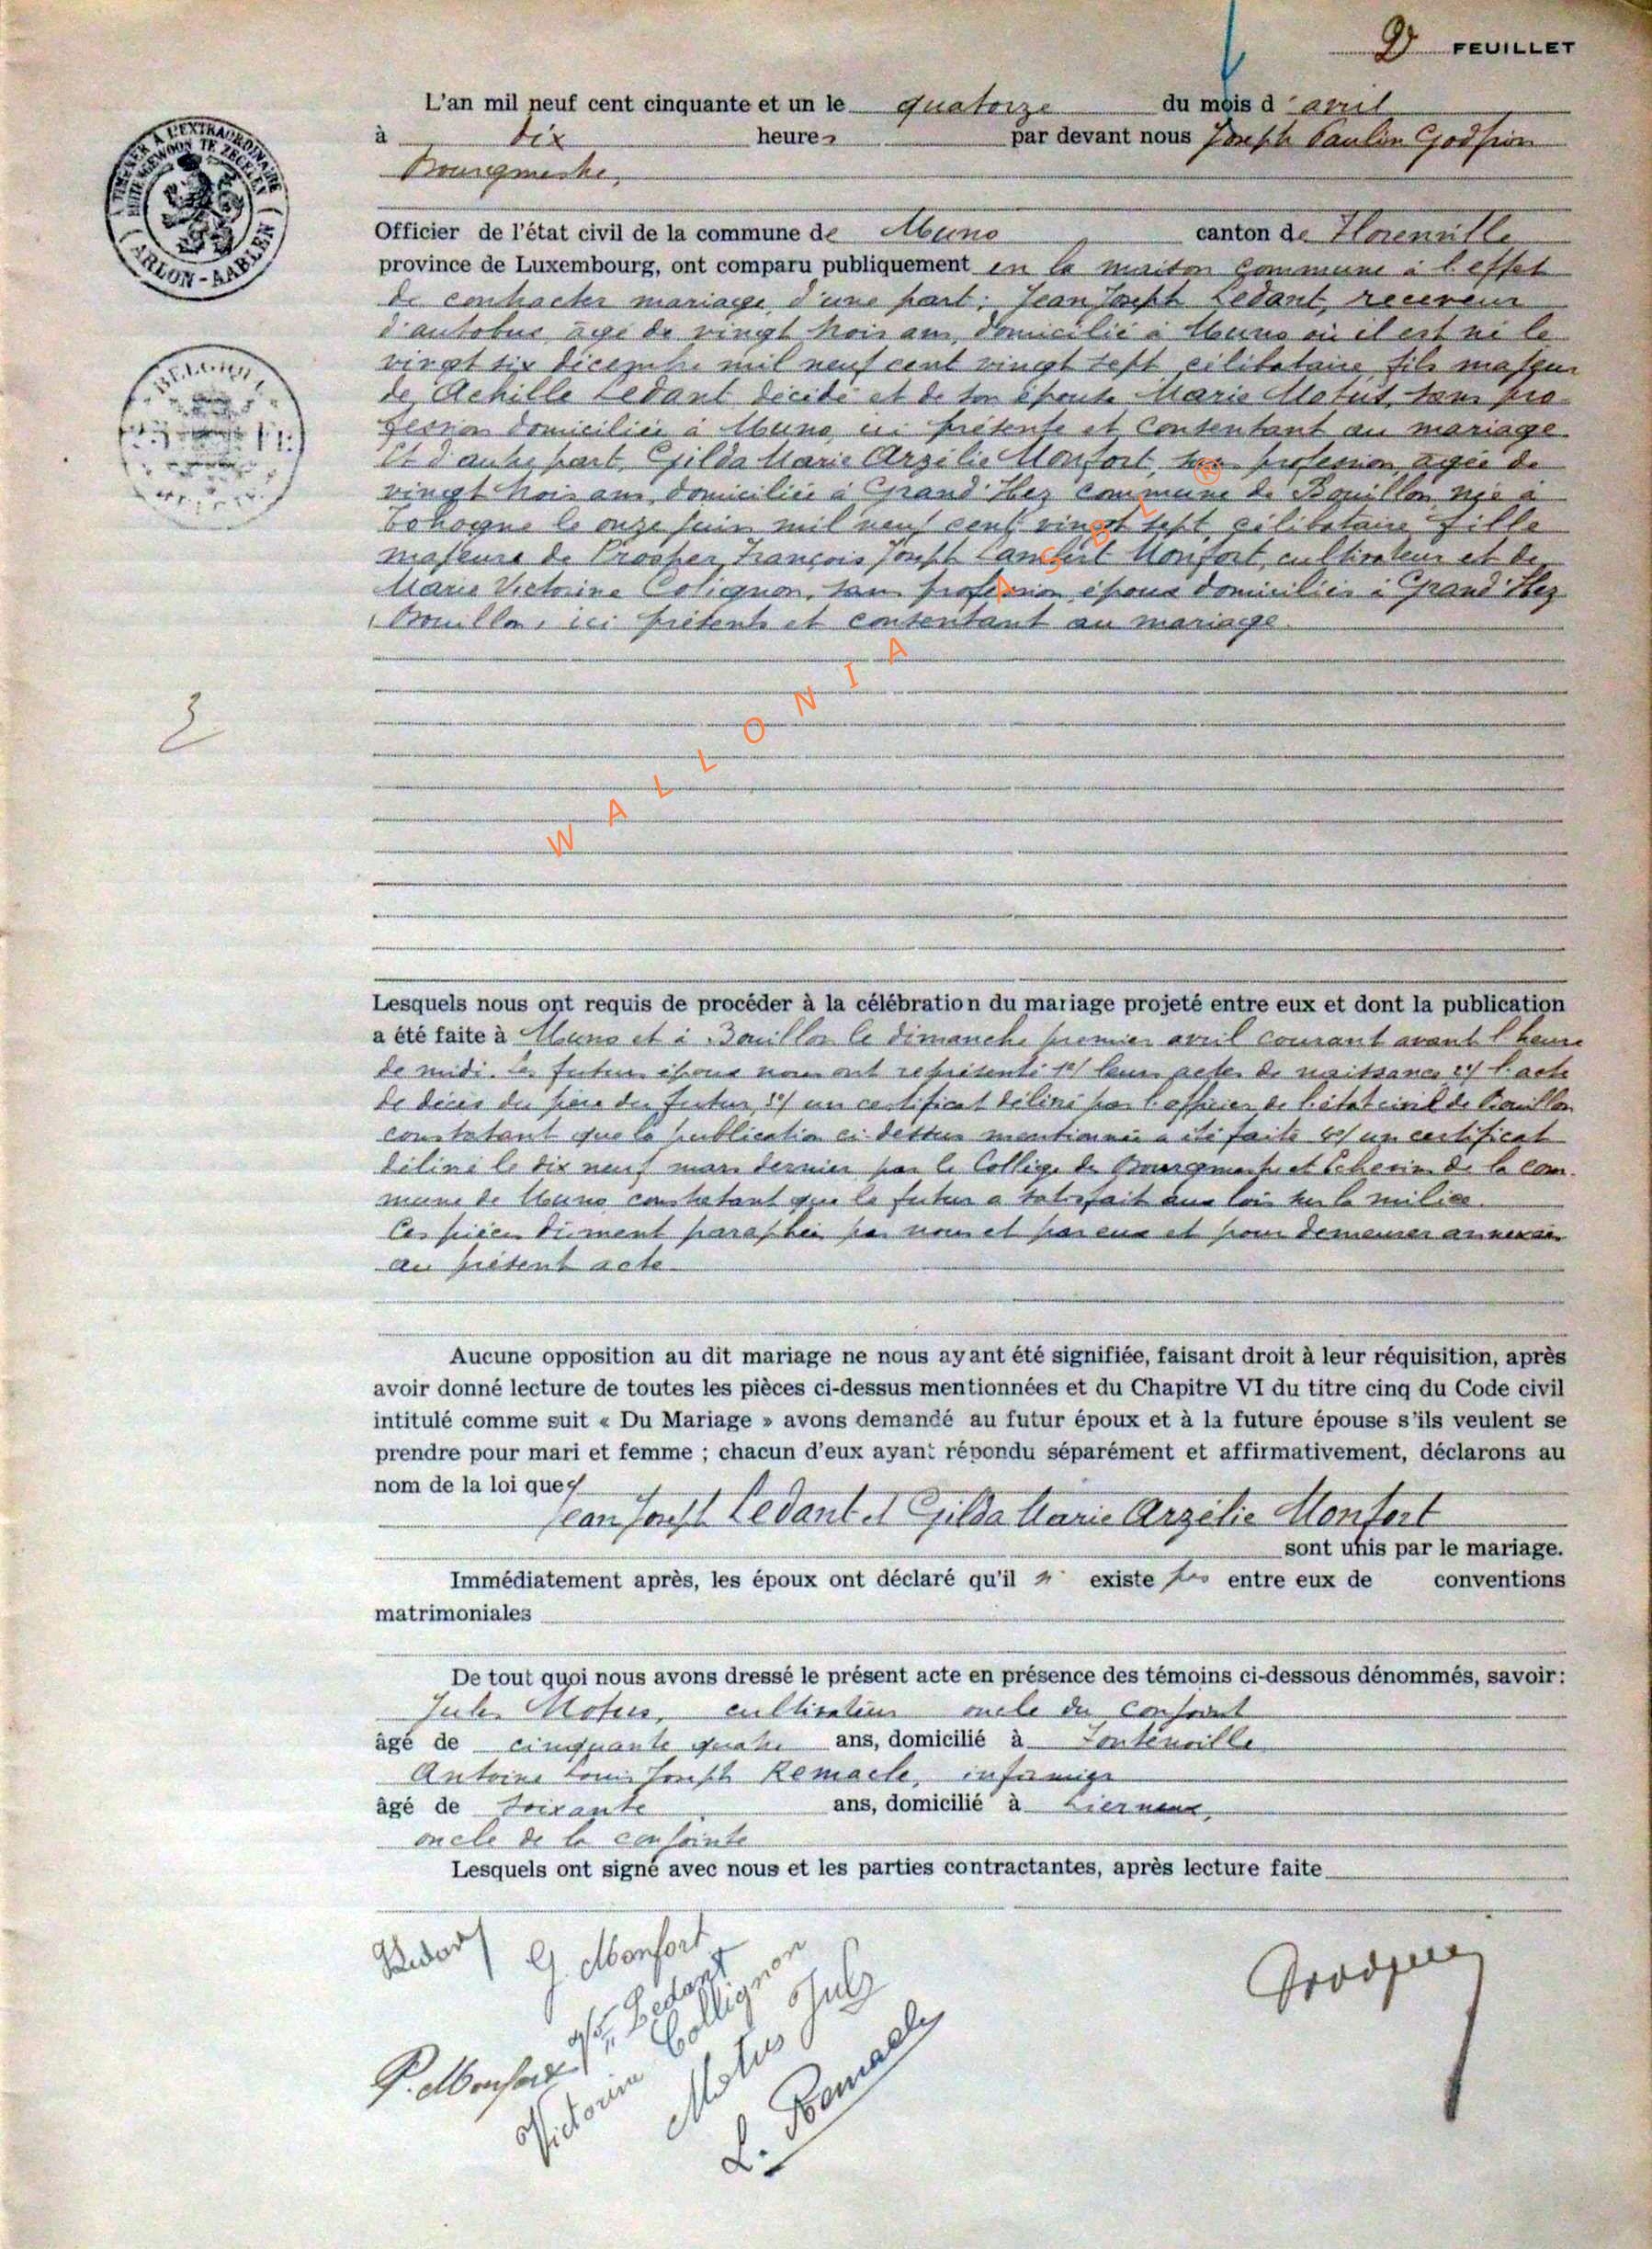 2 FEUILLET
L'an mil neuf cent cinquante et un le quatorze du mois d'avril
à dix heures par devant nous Joseph Paulin Godfrin
Bourgmestre,
Officier de l'état civil de la commune de Muno canton de Florenville
province de Luxembourg, ont comparu publiquement en la maison commune à l'effet
de contracter mariage, d'une part: Jean Joseph Ledant, receveur
d'autobus, âgé de vingt trois ans, domicilié à Muno où il est né le
vingt six décembre mil neuf cent vingt sept, célibataire, fils majeur
de Achille Ledant, décédé et de son épouse Marie Motus, sans pro-
fession domiciliée à Muno, ici présente et consentant au mariage.
Et d'autre part, Gilda Marie Arzélie Monfort, sans profession, âgée de
vingt trois ans, domiciliée à Grand'Hez commune de Bouillon, née à
Tohogne le onze juin mil neuf cent vingt sept, célibataire, fille
majeure de Prosper François Joseph Lambert Monfort, cultivateur et de
Marie Victorine Colignon, sans profession, époux domiciliés à Grand'Hez
Bouillon, ici présents et consentant au mariage.
WALLONIA ASBL ®
2
Lesquels nous ont requis de procéder à la célébration du mariage projeté entre eux et dont la publication
a été faite à Muno et à Bouillon le dimanche premier avril courant avant l'heure
de midi. Les futurs époux nous ont représenté 1°/ leurs actes de naissance 2°/ l'acte
de décès du père du futur, 3°/ un certificat délivré par l'officier de l'état civil de Bouillon
constatant que la publication ci-dessus mentionnée a été faite 4°/ un certificat
délivré le dix neuf mars dernier par le Collège des Bourgmestre et Echevins de la com-
mune de Muno constatant que le futur a satisfait aux lois sur la milice.
Ces pièces dûment paraphées par nous et par eux et pour demeurer annexées
au présent acte.
Aucune opposition au dit mariage ne nous ayant été signifiée, faisant droit à leur réquisition, après
avoir donné lecture de toutes les pièces ci-dessus mentionnées et du Chapitre VI du titre cinq du Code civil
intitulé comme suit « Du Mariage » avons demandé au futur époux et à la future épouse s'ils veulent se
prendre pour mari et femme ; chacun d'eux ayant répondu séparément et affirmativement, déclarons au
nom de la loi que
Jean Joseph Ledant et Gilda Marie Arzélie Monfort
sont unis par le mariage.
Immédiatement après, les époux ont déclaré qu'il n' existe pas entre eux de conventions
matrimoniales
De tout quoi nous avons dressé le présent acte en présence des témoins ci-dessous dénommés, savoir :
Jules Motus, cultivateur oncle du conjoint
âgé de cinquante quatre ans, domicilié à Fontenoille
Antoine Louis Joseph Remacle, infirmier
âgé de soixante ans, domicilié à Lierneux,
oncle de la conjointe
Lesquels ont signé avec nous et les parties contractantes, après lecture faite
G. Monfort
Ledant
P. Monfort
Victorine Collignon
Motus Jules
L. Remacle
TIMBRER A L'EXTRAORDINAIRE
BUITENGEWOON TE ZEGELEN
ARLON-AARLEN
BELGIQUE